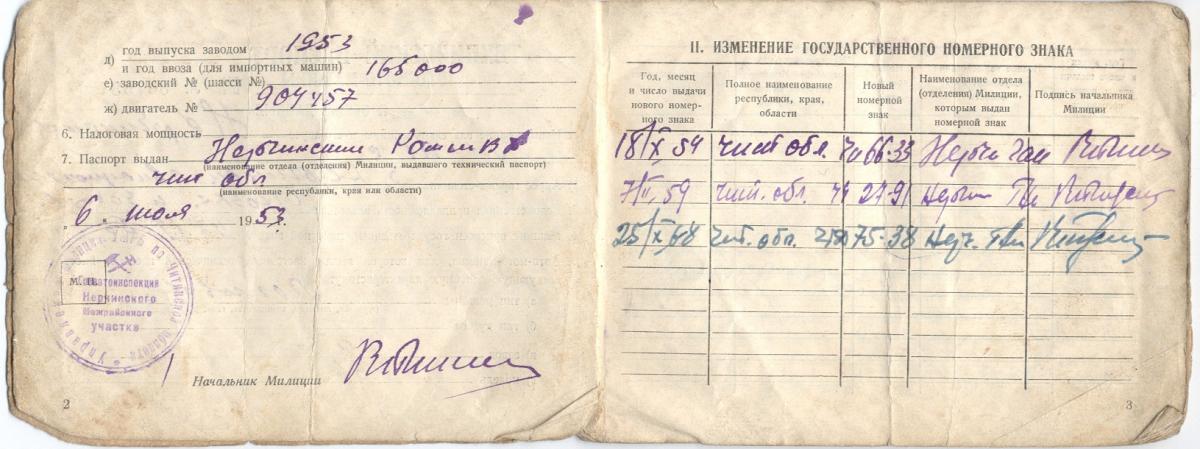 д) год выпуска заводом 1953
и год ввоза (для импортных машин)
е) заводский № (шасси №) 165000
ж) двигатель № 904457
6. Налоговая мощность
7. Паспорт выдан Нерчинским
(наименование отдела (отделения) Милиции, выдавшего технический паспорт)
Чит обл
(наименование республики, края или области)
„ 6 " июля 1953 г.
Управление Милиции по Читинской области
М. П.
Госавтоинспекция
Нерчинского
Межрайонного
участка
Начальник Милиции
2
II. ИЗМЕНЕНИЕ ГОСУДАРСТВЕННОГО НОМЕРНОГО ЗНАКА
Год, месяц и число выдачи нового номерного знака
Полное наименование республики, края, области
Новый номерной знак
Наименование отдела (отделения) Милиции, которым выдан номерной знак
Подпись начальника Милиции
18/X 54 Чит обл. 66-33
59 Чит. обл. 27-91
25/X 68 Чит. обл. 75-38 Нерч.
3